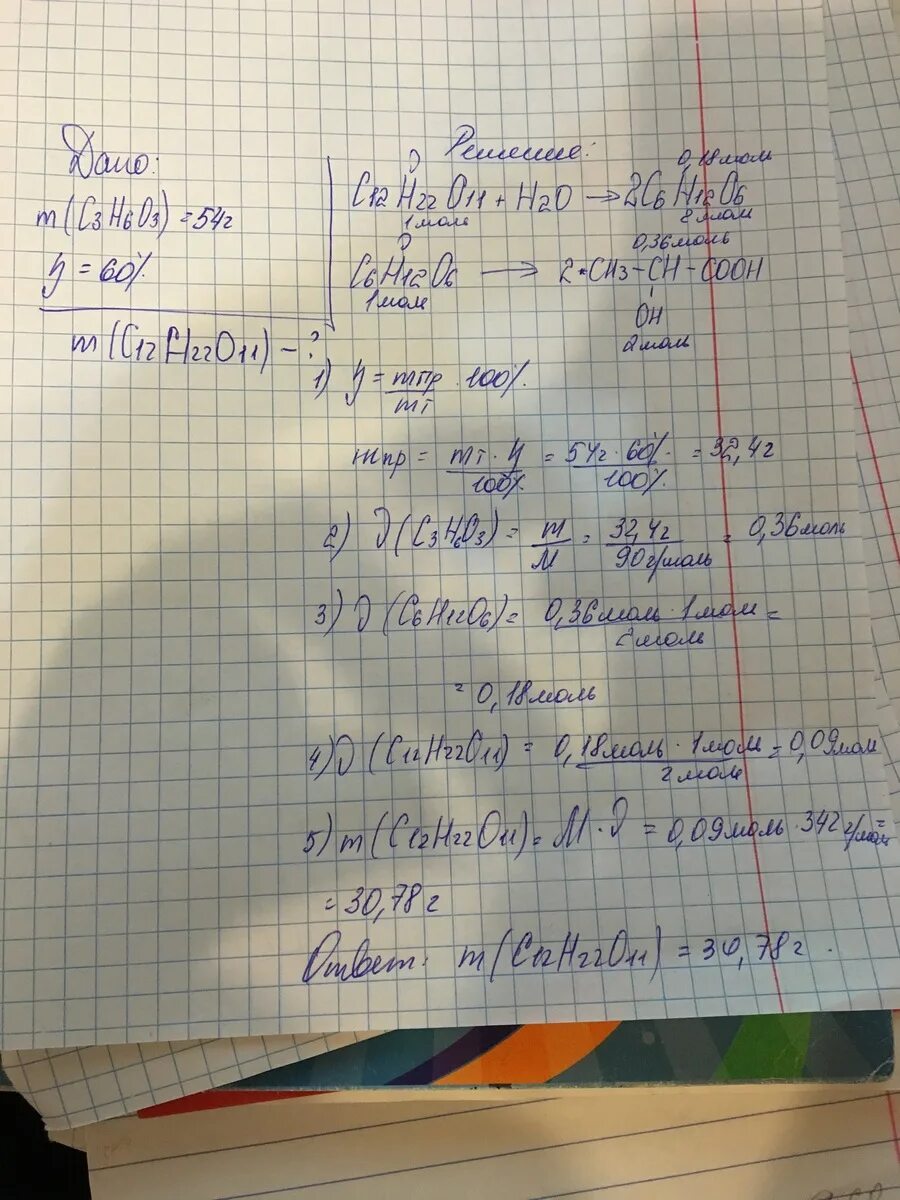 Дано:
m(C3H6O3) = 54г
η = 60%
m(C12H22O11) - ?
Решение:
0,18моль
C12H22O11 + H2O → 2C6H12O6
1моль
C6H12O6 → 2 CH3-CH-COOH
0,36моль
1мол
OH
2моль
1) η = mпр/mт · 100%.
mпр = mт · η/100% = 54г · 60%/100% = 32,4г
2) ν(C3H6O3) = m/M = 32,4г/90г/моль = 0,36моль
3) ν(C6H12O6) = 0,36моль · 1мол/2моль =
= 0,18моль
4) ν(C12H22O11) = 0,18моль · 1мол/2мол = 0,09мол
5) m(C12H22O11) = M · ν = 0,09моль · 342 г/мол =
= 30,78г
Ответ: m(C12H22O11) = 30,78г.